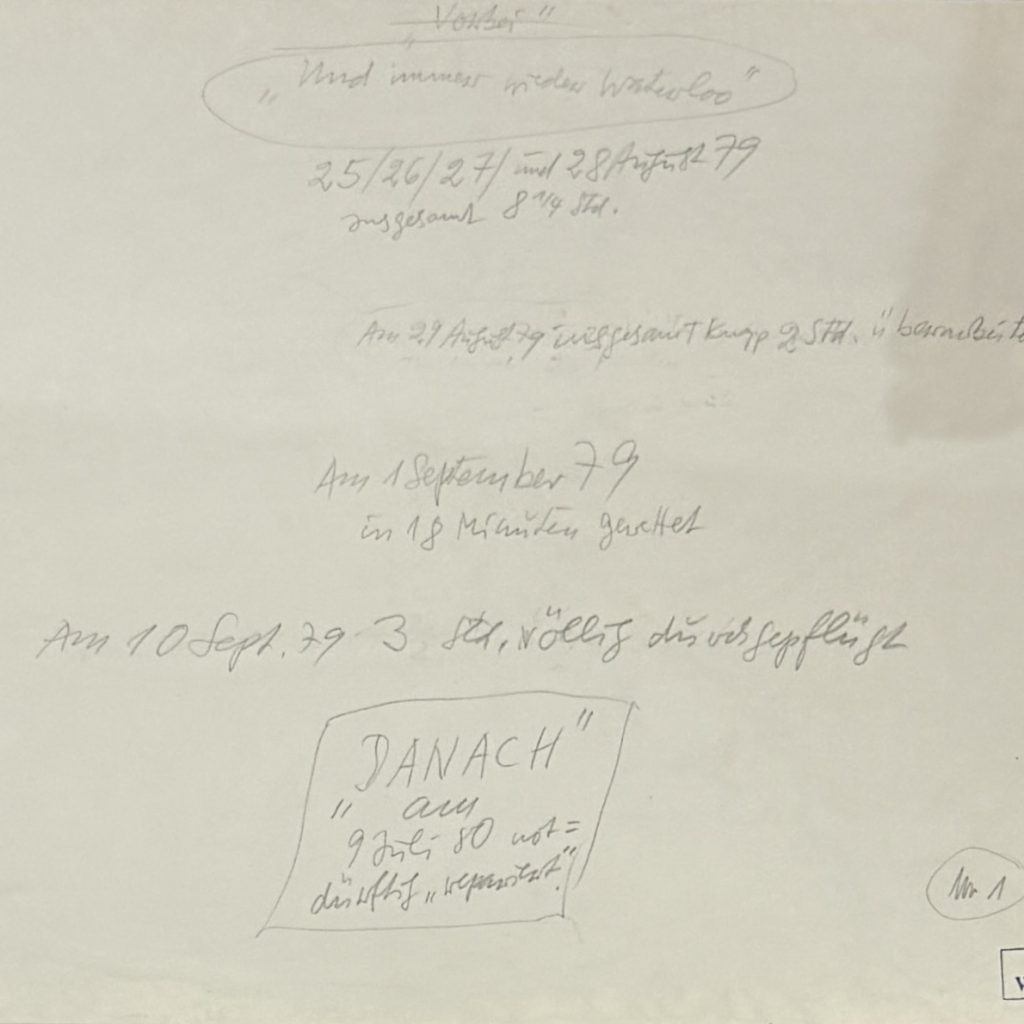 "Vorbei"
"Und immer wieder Waterloo"
25/26/27/ und 28 August 79
insgesamt 8 1/4 Std.
Am 29 August 79 insgesamt knapp 2 Std. überarbeitet
Am 1 September 79
in 18 Minuten gerettet
Am 10 Sept. 79 3 Std. völlig durchgepflügt
"DANACH"
am
9 Juli 80 not=
dürftig „repariert".
Nr 1